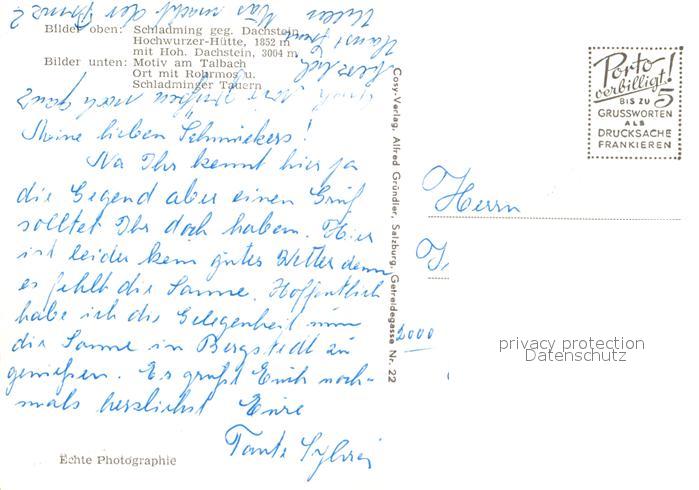 Bilder oben: Schladming geg. Dachstein
Hochwurzer-Hütte, 1852 m
mit Hoh. Dachstein, 3004 m
Bilder unten: Motiv am Talbach
Ort mit Rohrmos u.
Schladminger Tauern
Meine lieben Schmiekers!
Na Ihr kennt hier ja
die Gegend aber einen Gruß
solltet Ihr doch haben. Hier
ist leider kein gutes Wetter denn
es fehlt die Sonne. Hoffentlich
habe ich die Gelegenheit nun
die Sonne in Bergstedt zu
genießen. Es grüßt Euch noch-
mals herzlichst Eure
Tante Sylvia
Echte Photographie
Cosy-Verlag, Alfred Gründler, Salzburg, Getreidegasse Nr. 22
Porto
verbilligt!
BIS ZU 5
GRUSSWORTEN
ALS
DRUCKSACHE
FRANKIEREN
Herrn
2000
privacy protection
Datenschutz